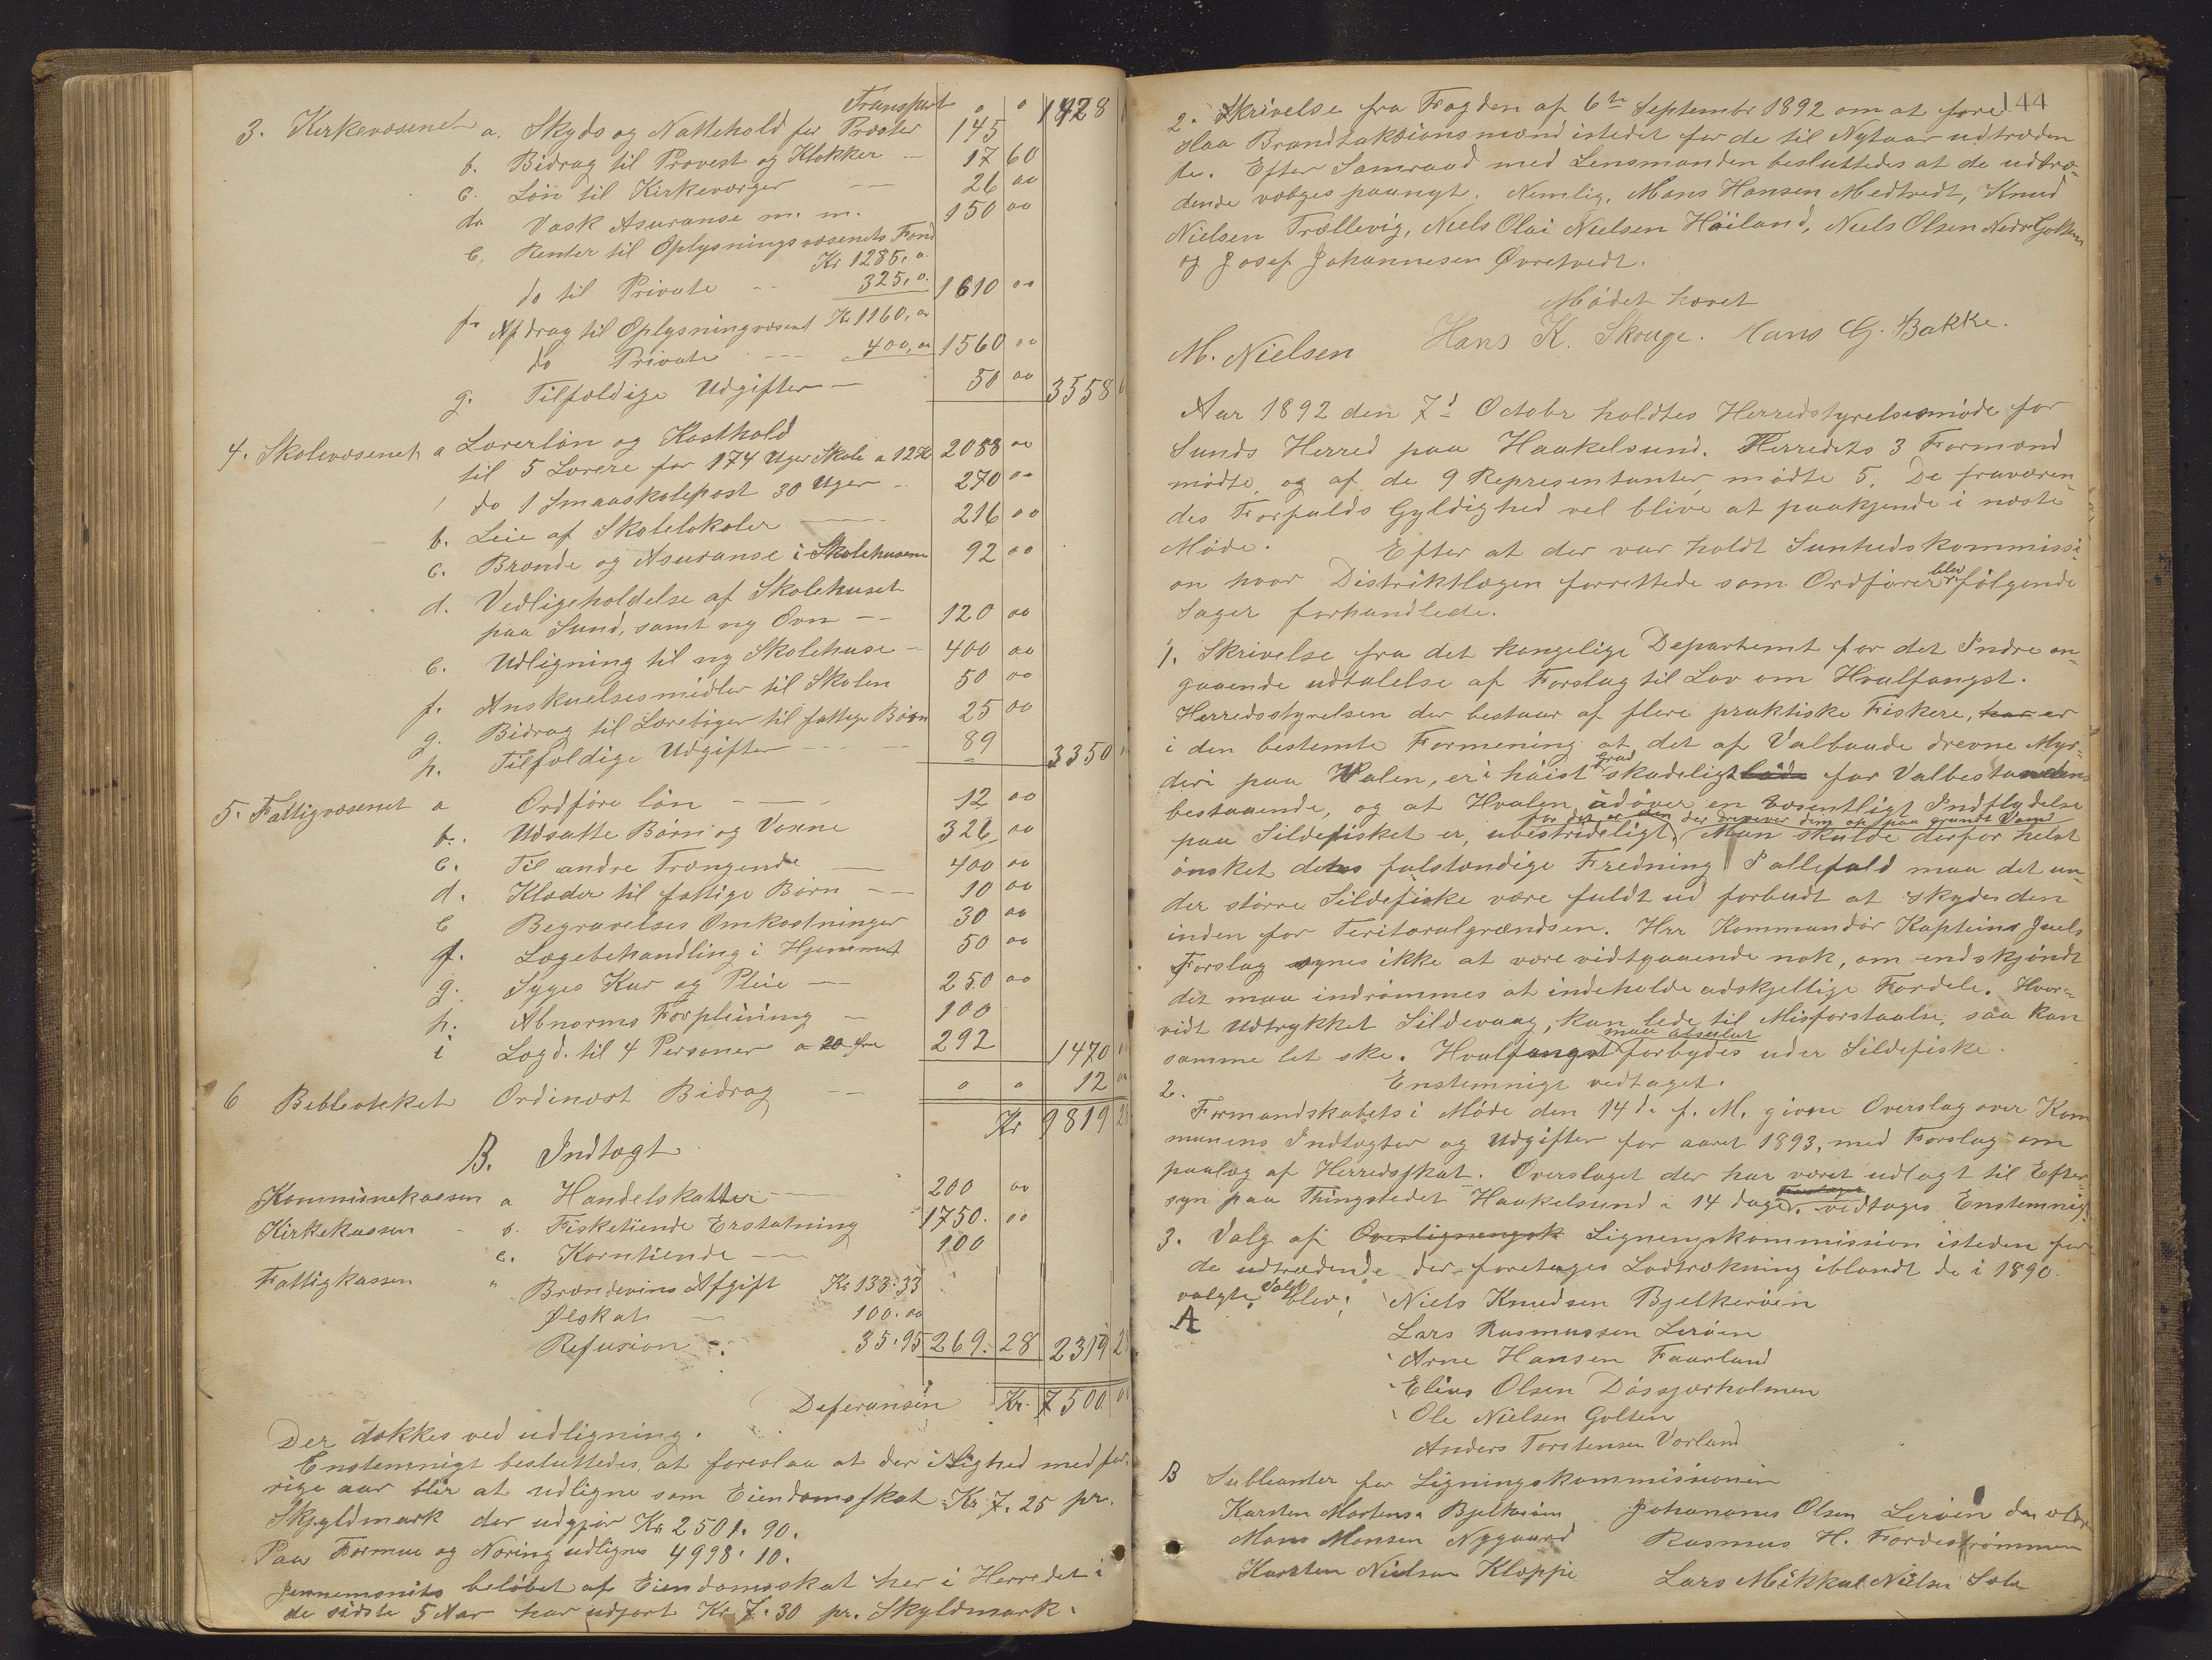 Transport " " 1428
3. Kirkevæsenet a. Skyds og Nattehold for Præster 145
b. Bidrag til Provst og Klokker — 17 60
c. Løn til Kirkeværger — — 26 00
d. Vask Asuranse m. m. 150 00
e. Renter til Oplysningsvæsenets Fond Kr 1285,0
do til Private — 325,0 1610 00
f. Afdrag til Oplysningvæsent Kr 1160,00
do Private — 400,00 1560 00
g. Tilfældige Udgifter — 50 00 3558
4. Skolevæsenet a Lærerløn og Kosthold
til 5 Lærere for 174 Uger Skole a 12 Kr 2088 00
do 1 Smaaskolepost 30 Uger — 270 00
b. Leie af Skolelokaler — 216 00
c. Brænde og Asuranse i Skolehusene 92 00
d. Vedligeholdelse af Skolehuset
paa Sund, samt ny Ovn — 120 00
e. Udligning til ny Skolehuse — 400 00
f. Anskuelsesmidler til Skolen 50 00
g. Bidrag til Læretøger til fattige Børn 25 00
h. Tilfældige Udgifter — 89 3350
5. Fattigvæsenet a Ordføre løn — 12 00
b. Udsatte Børn og Voxne 326 00
c. Til andre Trængende — 400 00
d. Klæder til fattige Børn — 10 00
e Begravelses Omkostninger 30 00
f. Lægebehandling i Hjemmet 50 00
g. Syges Kur og Pleie — 250 00
h. Abnorms Forpleining — 100
i Lægd. til 4 Personer a 20 øre 292 1470
6 Bebleoteket Ordinært Bidrag — " " 12 00
Kr 9819
B. Indtægt
Kommunekassen a Handelskatter — 200 00
Kirkekassen — b. Fisketiende Erstatning 1750. 00
c. Korntiende — 100
Fattigkassen " Brændevinsafgift Kr 133.33
Ølskat — 100.00
Refusion — 35.95 269. 28 2319
Deferansen Kr. 7500
Der dækkes ved udligning.
Enstemnigt besluttedes, at foreslaa at der i Lighed med for-
rige aar blir at udligne som Eiendomsskat Kr. 7.25 pr.
Skyldmark der udgjør Kr 2501.90.
Paa Formue og Næring udlignes 4998.10.
Jennemsnits beløbet af Eiendomsskat her i Herredet i
de sidste 5 Aar har udjort Kr 7.30 pr. Skyldmark.
144
2. Skrivelse fra Fogden af 6te Septembr 1892 om at fore
slaa Brandtaksionsmænd istedet for de til Nytaar udtræden
de. Efter Samraad med Lensmanden besluttedes at de udtræ-
dende vælges paanyt. Nemlig, Mons Hansen Medtvedt, Knud
Nielsen Trællevig, Niels Olai Nielsen Høiland, Niels Olsen Nedr Golten
og Josef Johannesen Øvretvedt.
Mødet hævet
M. Nielsen Hans K. Skouge. Hans G. Bakke.
Aar 1892 den 7d Octobr holdtes Herredstyrelsesmøde for
Sunds Herred paa Haakelsund. Herredets 3 Formænd
mødte, og af de 9 Representanter mødte 5. De fraværen-
des Forfalds Gyldighed vel blive at paakjende i næste
Møde. Efter at der var holdt Sunhedskommissi-
on hvor Distriktlægen forrettede som Ordfører blev følgende
Sager forhandlede.
1. Skrivelse fra det kongelige Departemt for det Indre an-
gaaende udtalelse af Forslag til Lov om Hvalfangst.
Herredsstyrelsen der bestaar af flere praktiske Fiskere, har er
i den bestemte Formening at det af Valbaade drevne Myr-
deri paa Hvalen, er i høist Grad skadeligt både for Valbestanden
bestaaende, og at Hvalen udøver en væsentligt Indflydelse
for det er den der drever dem op paa grundt Vand
paa Sildefisket er, ubestrideligt. Man skulde derfor helst
ønsket dets fulstændige Fredning. I allefald maa det un-
der større Sildefiske være fuldt ud forbudt at skyde den
inden for Teritoralgrændsen. Hrr Kommandør Kapteins Juels
Forslag synes ikke at være vidtgaaende nok, om endskjøndt
det maa indrømmes at indeholde adskjellige Fordele. Hvor-
vidt Udtrykket Sildevaag, kan lede til Misforstaalse, saa kan
samme let ske. Hvalfangst maa absulut forbydes uder Sildefiske.
Enstemnigt vedtaget.
2.
Formandskabets i Møde den 14d. f. M. givne Overslag over Kom
munens Indtægter og Udgifter for aaret 1893, med Forslag om
paalæg af Herredsskat. Overslaget der har været udlagt til Efter-
syn paa Thingstedet Haakelsund i 14 dage. vedtages Enstemnigt.
3. Valg af Overligningsk Ligningskommission isteden for
de udtrædende der foretages Lodtrækning iblandt de i 1890
valgte. Valgt blev: Niels Knudsen Bjelkerøen
A Lars Rasmussen Lerøen
Arne Hansen Faarland
Elias Olsen Døssjærholmen
Ole Nielsen Golten
Anders Torstensen Vorland
B Subleanter for Ligningskommissionen
Karsten Mortens. Bjelkerøen Johannes Olsen Lerøen den ældr
Mons Monsen Nygaard Rasmus H. Fordestrømmen
Karsten Nielsen Kloppe Lars Mikkal Nielsen Sole